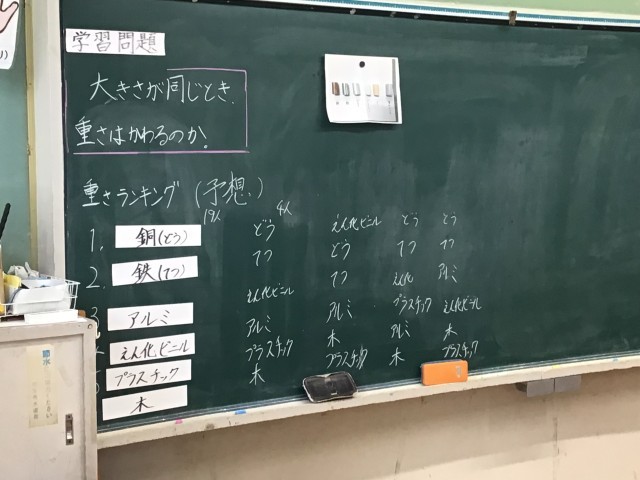 学習問題
大きさが同じとき、
重さはかわるのか。
重さランキング(予想)
19人 4人
1. 銅(どう) どう えん化ビニル どう どう
2. 鉄(てつ) てつ どう てつ てつ
えん化ビニル てつ えん化 アルミ
3 アルミ アルミ アルミ プラスチック えん化ビニル
えん化ビニル プラスチック 木 アルミ 木
プラスチック 木 プラスチック 木 プラスチック
木
節水